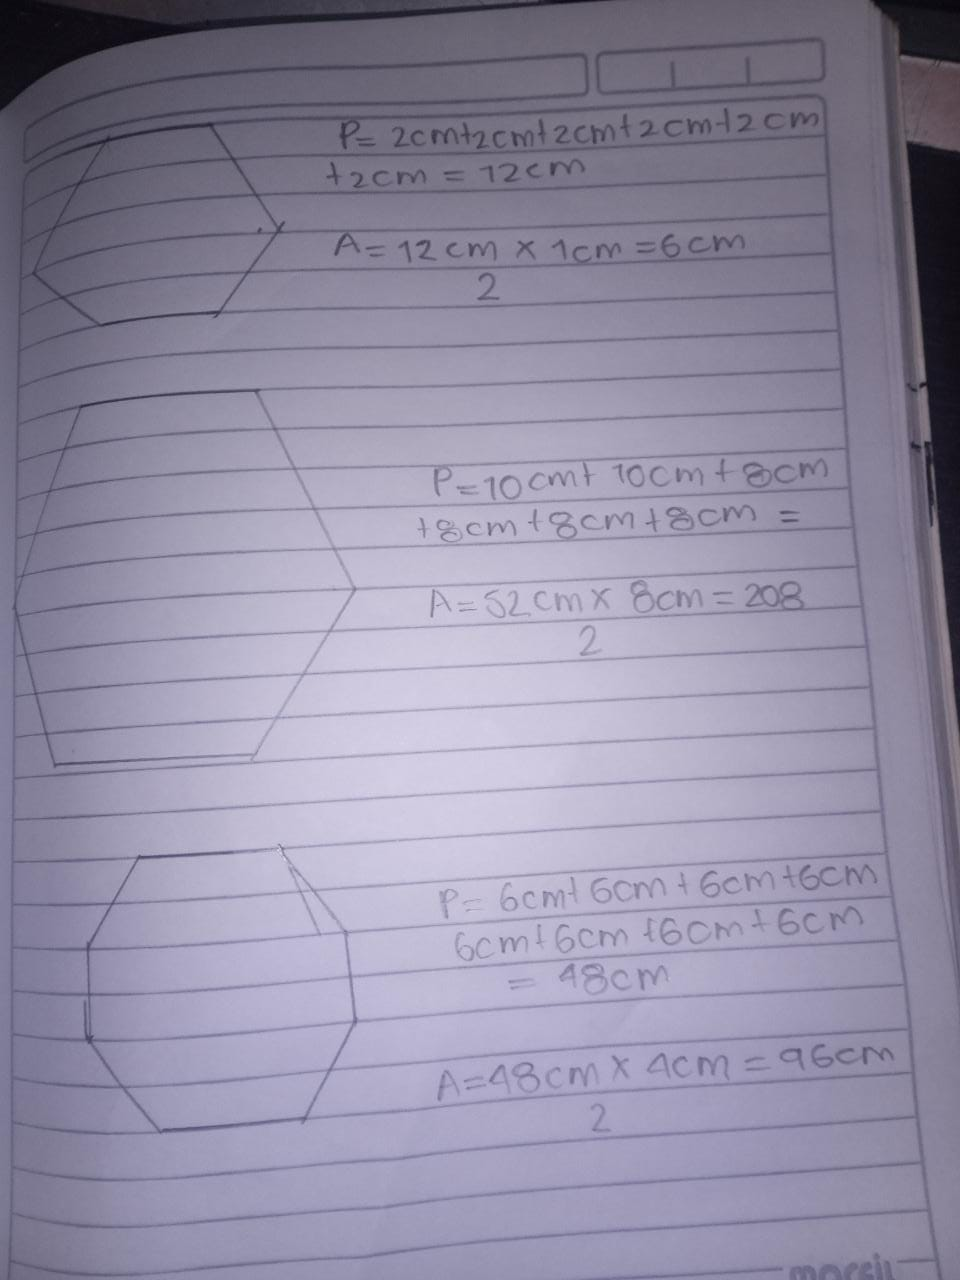 P= 2cm+2cm+2cm+2cm+2cm
+2cm = 12cm
A= 12cm x 1cm = 6cm
2
P=10cm+ 10cm + 8cm
+8cm +8cm +8cm =
A= 52cm x 8cm = 208
2
P= 6cm+ 6cm + 6cm +6cm
6cm+6cm +6cm + 6cm
= 48cm
A=48cm x 4cm = 96cm
2